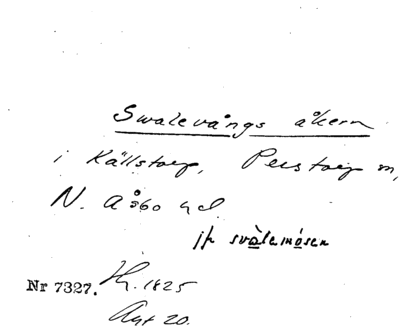 Swalevångs åkern
i Källstorp, Perstorp sn,
N. Åsbo hd
jfr svàlemósen
Nr 7327. Lh. 1825
Akt 20.